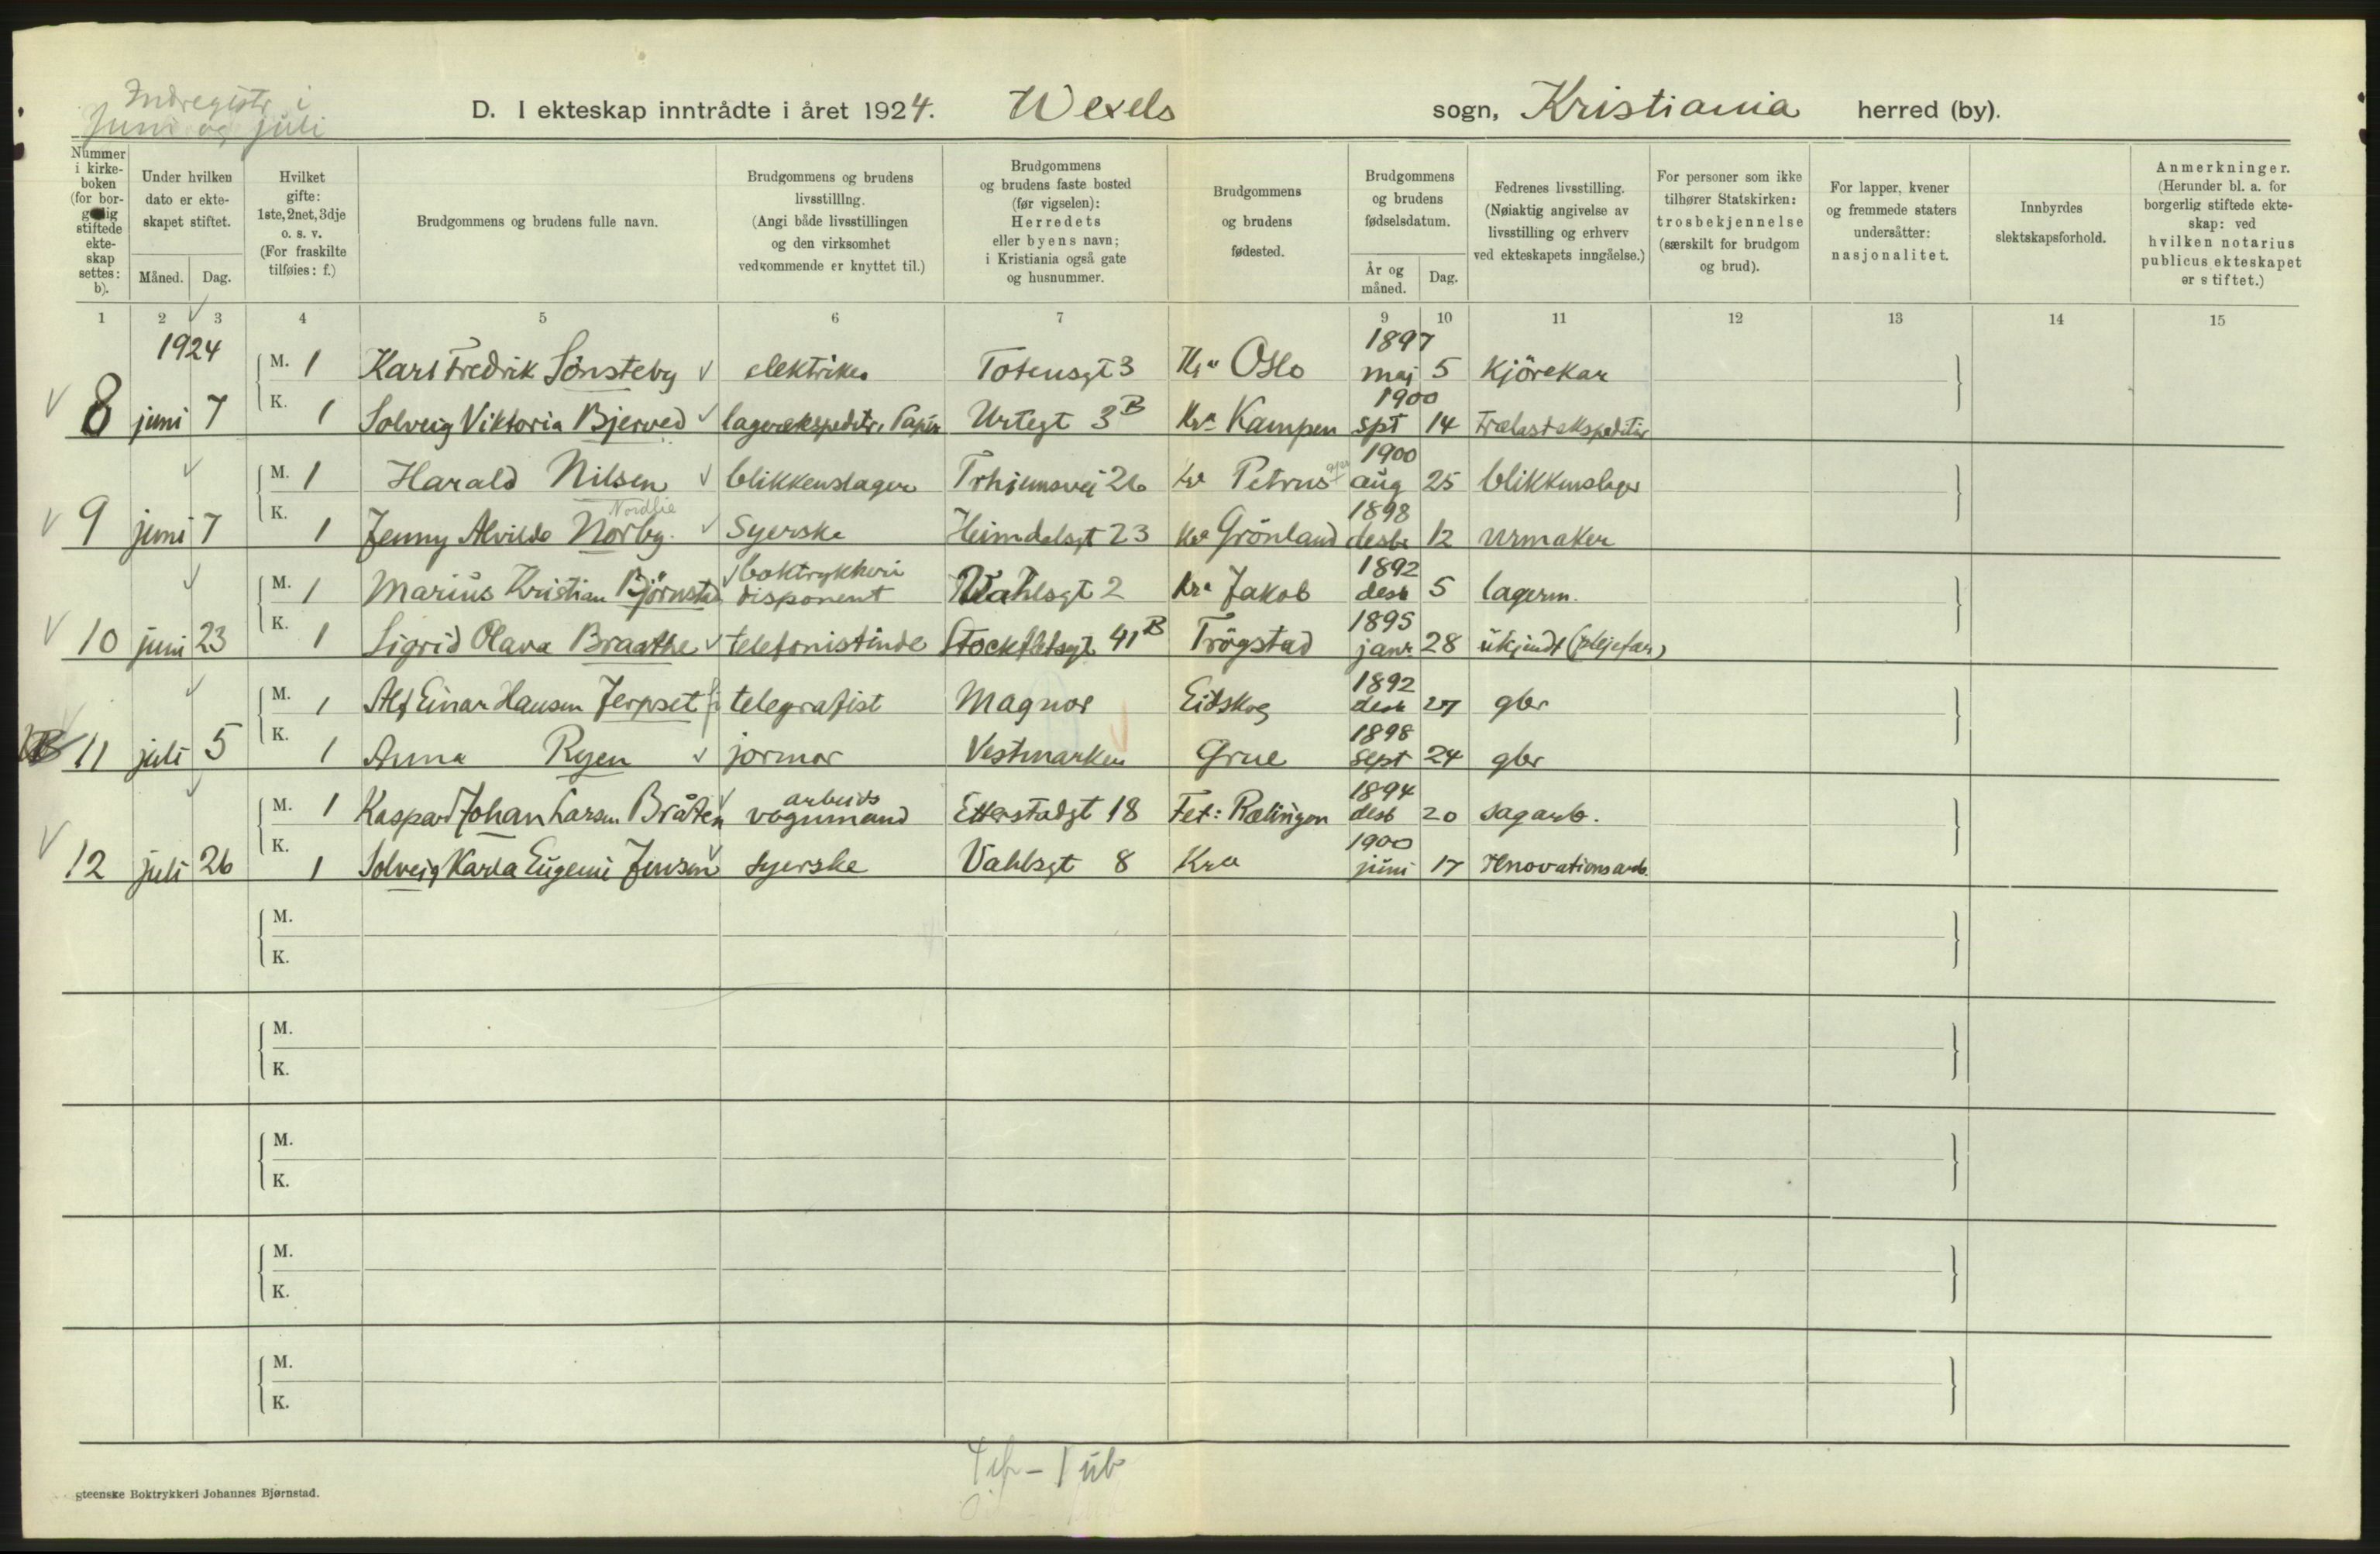 Indregistr i
Juni og juli
D. I ekteskap inntrådte i året 1924. Wexels sogn, Kristiania herred (by).
Nummer i kirke-boken (for bor-gerlig stiftede ekte-skap settes: b).
Under hvilken dato er ekte-skapet stiftet.
Måned. Dag.
Hvilket gifte: 1ste, 2net, 3dje o. s. v. (For fraskilte tilføies: f.)
Brudgommens og brudens fulle navn.
Brudgommens og brudens livsstilllng. (Angi både livsstillingen og den virksomhet vedkommende er knyttet til.)
Brudgommens og brudens faste bosted (før vigselen): Herredets eller byens navn; i Kristiania også gate og husnummer.
Brudgommens og brudens fødested.
Brudgommens og brudens fødselsdatum.
År og måned. Dag.
Fedrenes livsstilling. (Nøiaktig angivelse av livsstilling og erhverv ved ekteskapets inngåelse.)
For personer som ikke tilhører Statskirken: trosbekjennelse (særskilt for brudgom og brud).
For lapper, kvener og fremmede staters undersåtter: nasjonalitet.
Innbyrdes slektskapsforhold.
Anmerkninger. (Herunder bl. a. for borgerlig stiftede ekte-skap: ved hvilken notarius publicus ekteskapet er stiftet.)
1 2 3 4 5 6 7 9 10 11 12 13 14 15
1924 1897
M. 1 Karl Fredrik Sönsteby elektriker Totensgt 3 Kra Oslo maj 5 Kjörekar
1900
8 juni 7 K. 1 Solveig Viktoria Bjerved lagerekspeditr. Papir Urtegt 3B Kra Kampen spt 14 trælastekspeditör
1900
M. 1 Harald Nilsen blikkenslager Trhjemsvei 26 Kr Petrus aug 25 blikkenslager
Nordlie 1898
9 juni 7 K. 1 Jenny Alvilde Norby. Syerske Heimdalsgt 23 Kra Grönland desbr 12 urmaker
boktrykkeri 1892
M. 1 Marius Kristian Björnstad disponent Wahlsgt 2 Kra Jakob desb 5 lagerm.
1895
10 juni 23 K. 1 Sigrid Olava Braathe telefonistinde Stockfletsgt 41B Trögstad janr. 28 ukjendt (plejefar)
1892
M. 1 Alf Einar Hansen Jerpset telegrafist Magnor Eidskog desb 27 gbr
1898
11 juli 5 K. 1 Anna Ryen jormor Vestmarken Grue sept 24 gbr
arbeids 1894
M. 1 Kaspard Johan Larsen Bråten vognmand Etterstadgt 18 Fet: Rælingen desb 20 sagarb.
1900
12 juli 26 K. 1 Solveig Karla Eugeni Jensen syerske Vahlsgt 8 Kra juni 17 renovationsarb.
M.
K.
M.
K.
M.
K.
M.
K.
M.
K.
1 ub
steenske Boktrykkeri Johannes Bjørnstad.